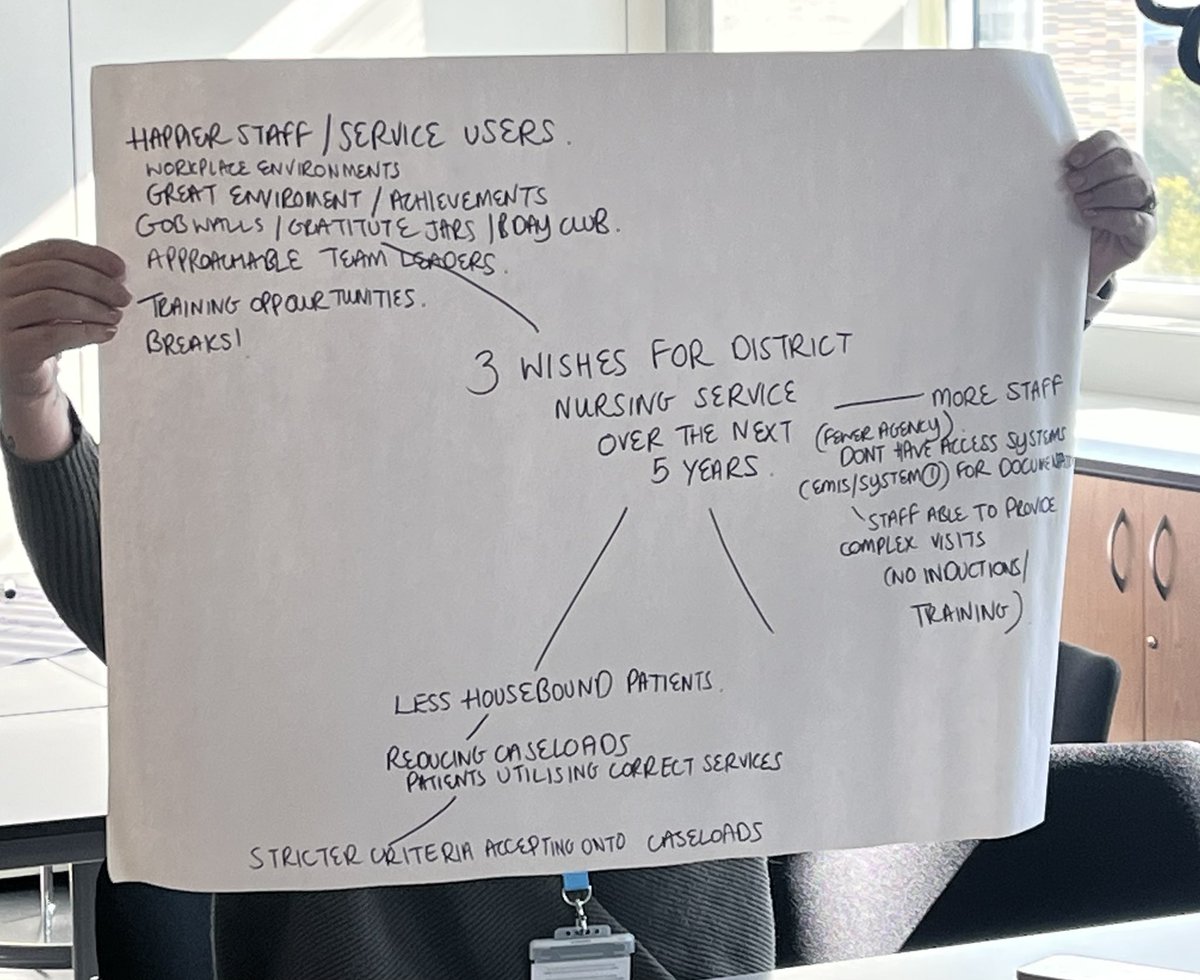 HAPPIER STAFF / SERVICE USERS.
WORKPLACE ENVIRONMENTS
GREAT ENVIROMENT / ACHIEVEMENTS
GOB WALLS / GRATITUTE JARS / BDAY CLUB.
APPROACHABLE TEAM LEADERS.
TRAINING OPPOURTUNITIES.
BREAKS!
3 WISHES FOR DISTRICT
NURSING SERVICE
OVER THE NEXT
5 YEARS.
MORE STAFF
(FEWER AGENCY)
DONT HAVE ACCESS SYSTEMS
(EMIS/SYSTEM①) FOR
STAFF ABLE TO PROVIDE
COMPLEX VISITS
(NO INDUCTIONS/
TRAINING)
LESS HOUSEBOUND PATIENTS.
REDUCING CASELOADS
PATIENTS UTILISING CORRECT SERVICES
STRICTER CRITERIA ACCEPTING ONTO CASELOADS